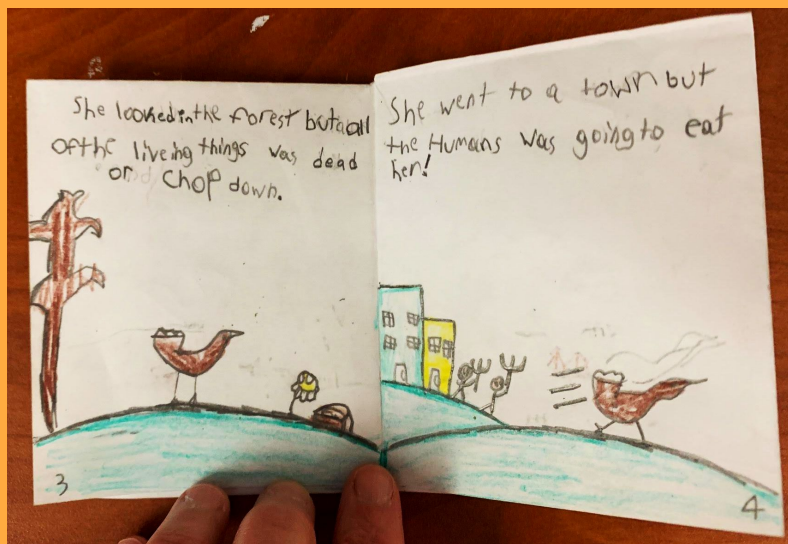 She looked in the forest but all
of the liveing things was dead
or chop down.
3
She went to a town but
the Humans was going to eat
her!
4